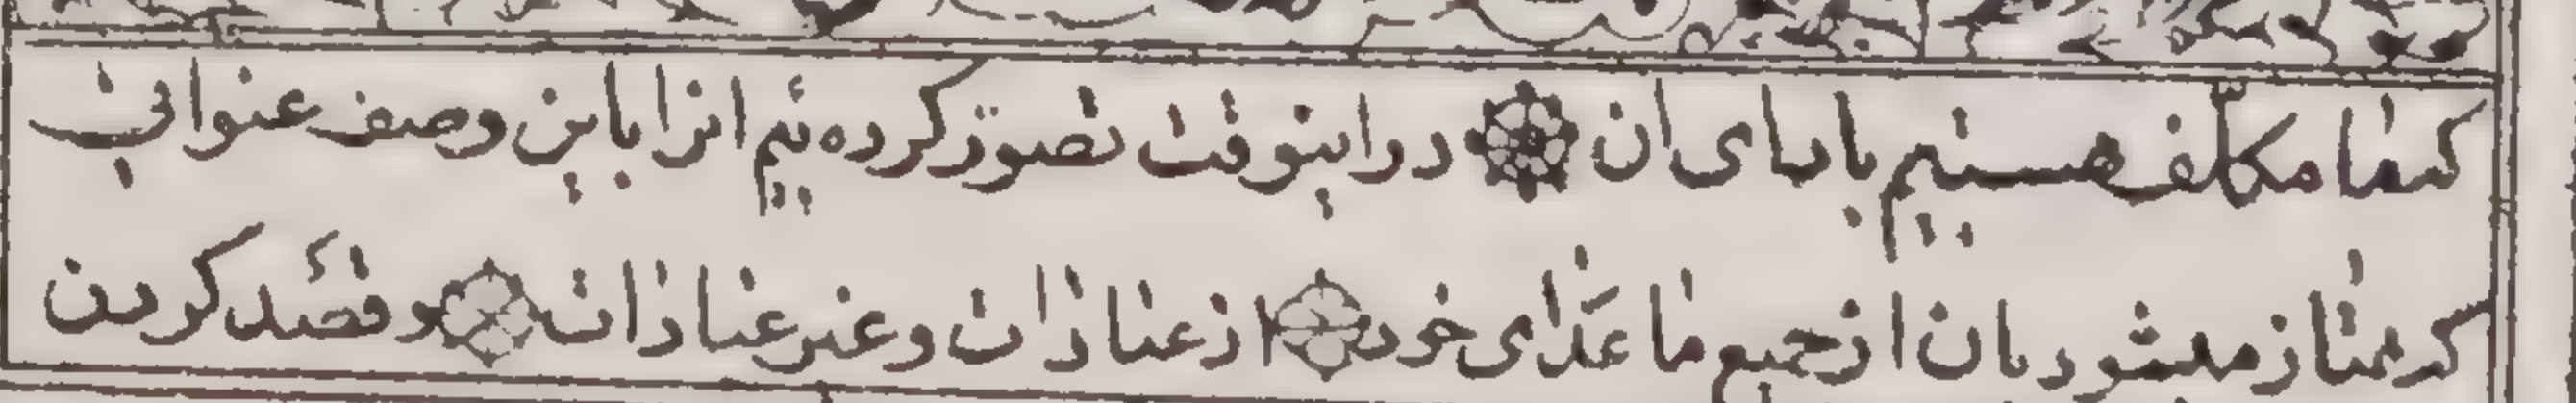 که ما مکلف هستیم باداى ان در اینوقت تصور کرده ئیم انرا باین وصف عنوانی
که ممتاز میشود بان از جمیع ما عدای خود از عبادات و غیر عبادات و قصد کردن